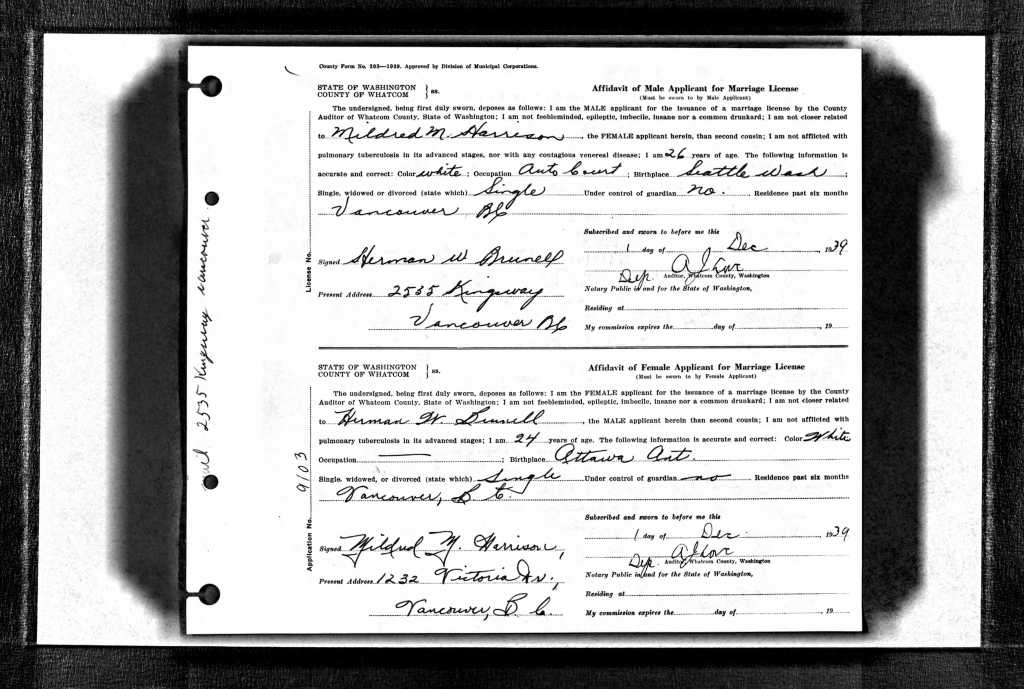 County Form No. 203—1939. Approved by Division of Municipal Corporations.
STATE OF WASHINGTON
COUNTY OF WHATCOM } ss.
Affidavit of Male Applicant for Marriage License
(Must be sworn to by Male Applicant)
The undersigned, being first duly sworn, deposes as follows: I am the MALE applicant for the issuance of a marriage license by the County
Auditor of Whatcom County, State of Washington; I am not feebleminded, epileptic, imbecile, insane nor a common drunkard; I am not closer related
to Mildred M. Harrison, the FEMALE applicant herein, than second cousin; I am not afflicted with
pulmonary tuberculosis in its advanced stages, nor with any contagious venereal disease; I am 26 years of age. The following information is
accurate and correct: Color white; Occupation Auto Court; Birthplace Seattle Wash;
Single, widowed or divorced (state which) Single Under control of guardian no. Residence past six months
Vancouver BC
Subscribed and sworn to before me this
1 day of Dec 1939
License No.
Signed Herman W Brunell
Dep. Auditor, Whatcom County, Washington
Notary Public in and for the State of Washington,
Present Address 2535 Kingsway
Residing at
Vancouver BC
My commission expires the day of , 19
STATE OF WASHINGTON
COUNTY OF WHATCOM } ss.
Affidavit of Female Applicant for Marriage License
(Must be sworn to by Female Applicant)
The undersigned, being first duly sworn, deposes as follows: I am the FEMALE applicant for the issuance of a marriage license by the County
Auditor of Whatcom County, State of Washington; I am not feebleminded, epileptic, imbecile, insane nor a common drunkard; I am not closer related
to Herman W. , the MALE applicant herein than second cousin; I am not afflicted with
pulmonary tuberculosis in its advanced stages; I am 24 years of age. The following information is accurate and correct: Color White
Occupation —; Birthplace Ottawa Ont.
Single, widowed, or divorced (state which) Single Under control of guardian no Residence past six months
Vancouver, B. C.
Subscribed and sworn to before me this
1 day of Dec. 1939
Application No. 9103
Signed Mildred M. Harrison,
Dep. Auditor, Whatcom County, Washington
Notary Public in and for the State of Washington,
Present Address 1232 Victoria Dr.,
Residing at
Vancouver, B. C.
My commission expires the day of , 19
2535 Kingsway Vancouver